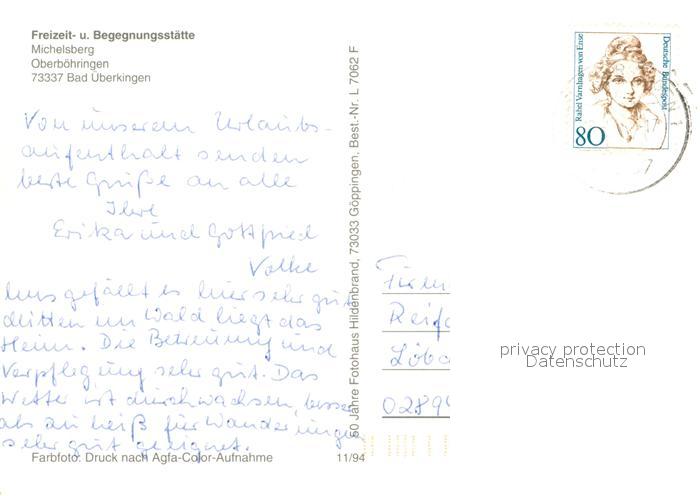 Freizeit- u. Begegnungsstätte
Michelsberg
Oberböhringen
73337 Bad Überkingen
Von unserem Urlaubs-
aufenthalt senden
beste Grüße an alle
Ihre
Erika und Gottfried
Volke
Uns gefällt es hier sehr gut
mitten im Wald liegt das
Heim. Die Betreuung und
Verpflegung sehr gut. Das
Wetter ist durchwachsen, besser
als zu heiß für Wanderungen
sehr gut geeignet.
Farbfoto: Druck nach Agfa-Color-Aufnahme
11/94
60 Jahre Fotohaus Hildenbrand, 73033 Göppingen, Best.-Nr. L 7062 F
Rahel Varnhagen von Ense
Deutsche Bundespost
80
Reif
Löb
0289
privacy protection
Datenschutz